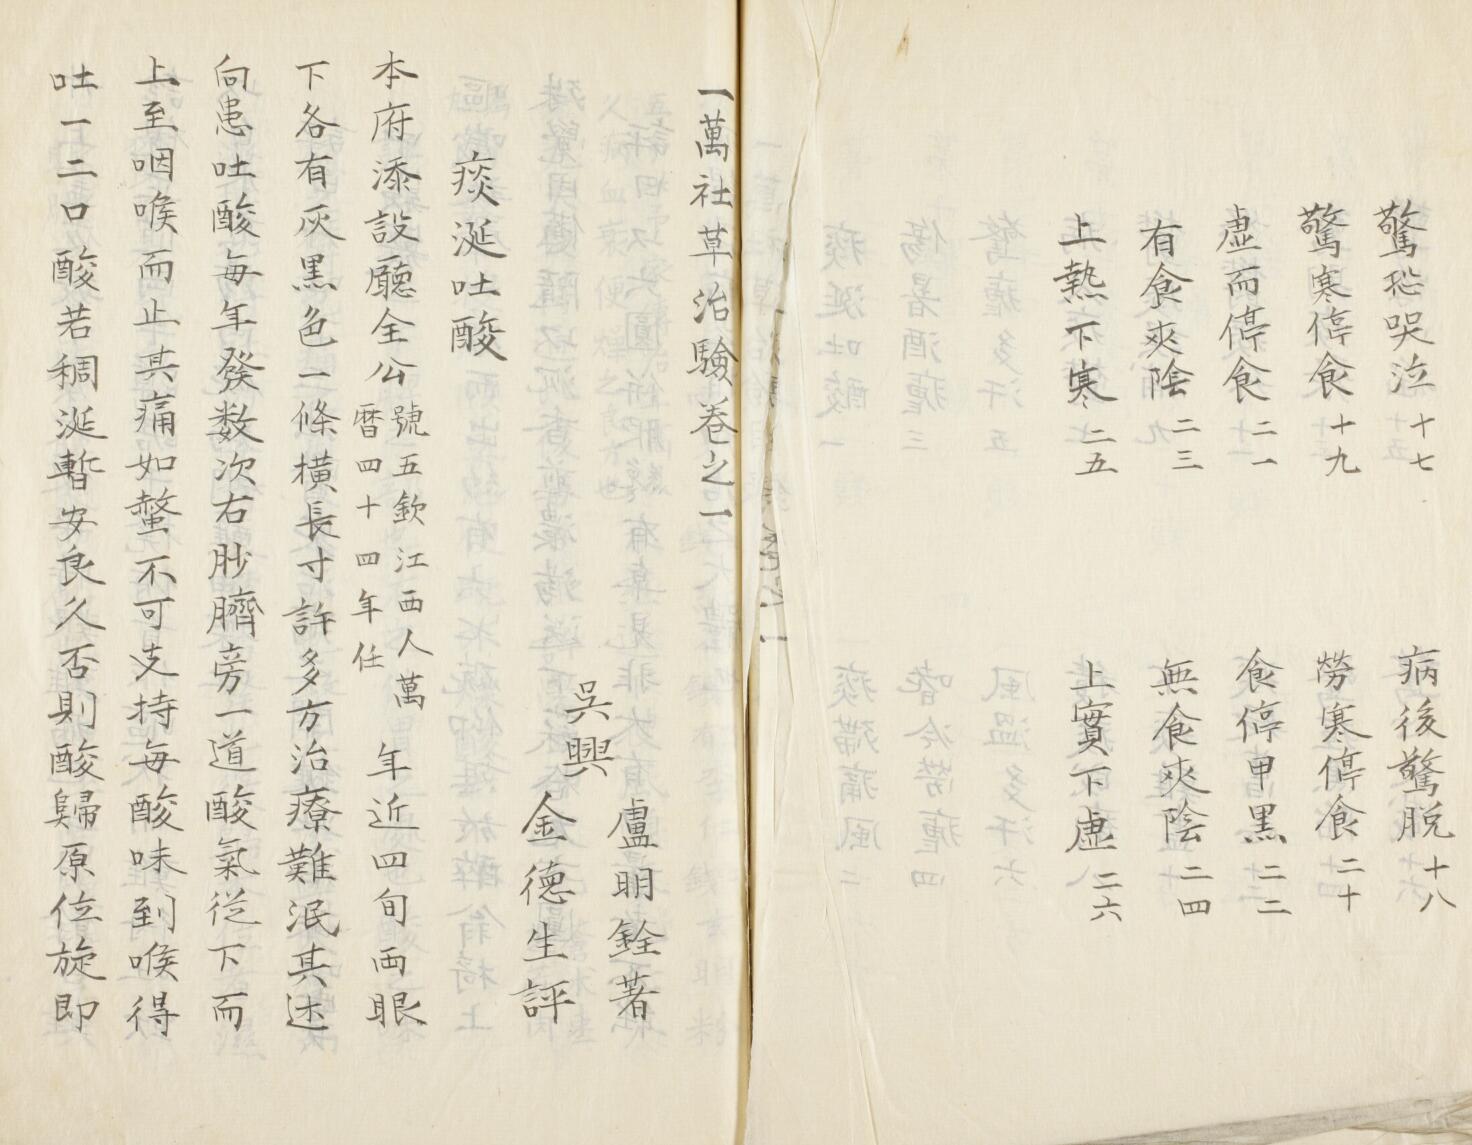 驚恐哭泣十七
病後驚脱十八
驚寒停食十九
勞寒停食二十
虛而停食二一
食停甲黑二二
有食夾陰二三
無食夾陰二四
上熱下寒二五
上實下虛二六
一萬社草治驗卷之一
盧明銓著
吳興
金德生評
痰涎吐酸
本府添設廳全公號五欽江西人萬
曆四十四年任
年近四旬両眼
下各有灰黑色一條橫長寸許多方治療難泯其述
向患吐酸每年發数次右䏚臍旁一道酸氣從下而
上至咽喉而止其痛如螫不可支持每酸味到喉得
吐一二口酸若稠涎暫安良久否則酸歸原位旋即